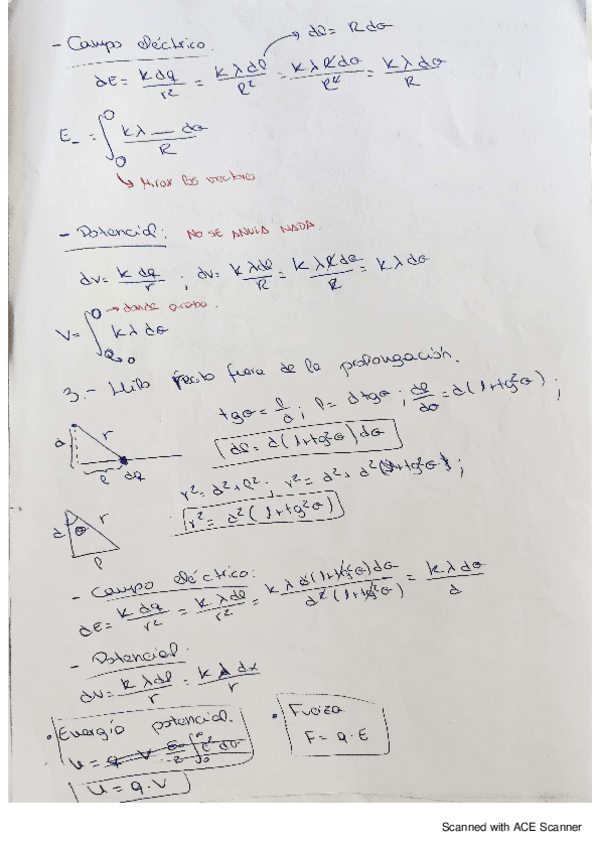 - Campo eléctrico.
dl = R dθ
dE = k dq / r² = k λ dl / R² = k λ R dθ / R² = k λ dθ / R
E_ = ∫₀^θ k λ __ dθ / R
↳ Mirar los vectores
- Potencial: NO SE ANULA NADA.
dv = k dq / r ; dv = k λ dl / R = k λ R dθ / R = k λ dθ
→ donde acaba.
V = ∫ k λ dθ
3.- Hilo recto fuera de la prolongación.
tgθ = l / d ; l = d tgθ ; dl / dθ = d (1+tg²θ) ;
dl = d (1+tg²θ) dθ
d r l dq
r² = d² + l² ; r² = d² + d² tg²θ ;
r² = d² (1+tg²θ)
d θ r l
- Campo eléctrico:
dE = k dq / r² = k λ dl / r² = k λ d (1+tg²θ) dθ / d² (1+tg²θ) = k λ dθ / d
- Potencial.
dv = k λ dl / r = k λ dx / r
• Energía potencial.
U = q · V
• Fuerza
F = q · E
Scanned with ACE Scanner